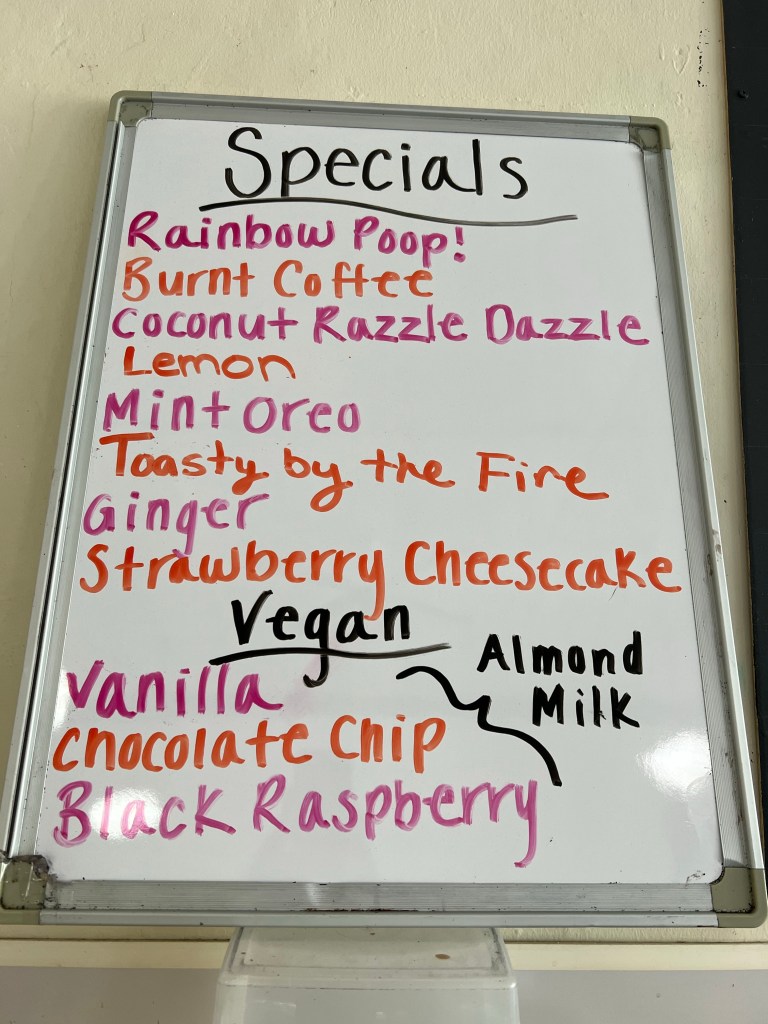 Specials
Rainbow Poop!
Burnt Coffee
Coconut Razzle Dazzle
Lemon
Mint Oreo
Toasty by the Fire
Ginger
Strawberry Cheesecake
Vegan
Almond
Milk
Vanilla
Chocolate Chip
Black Raspberry